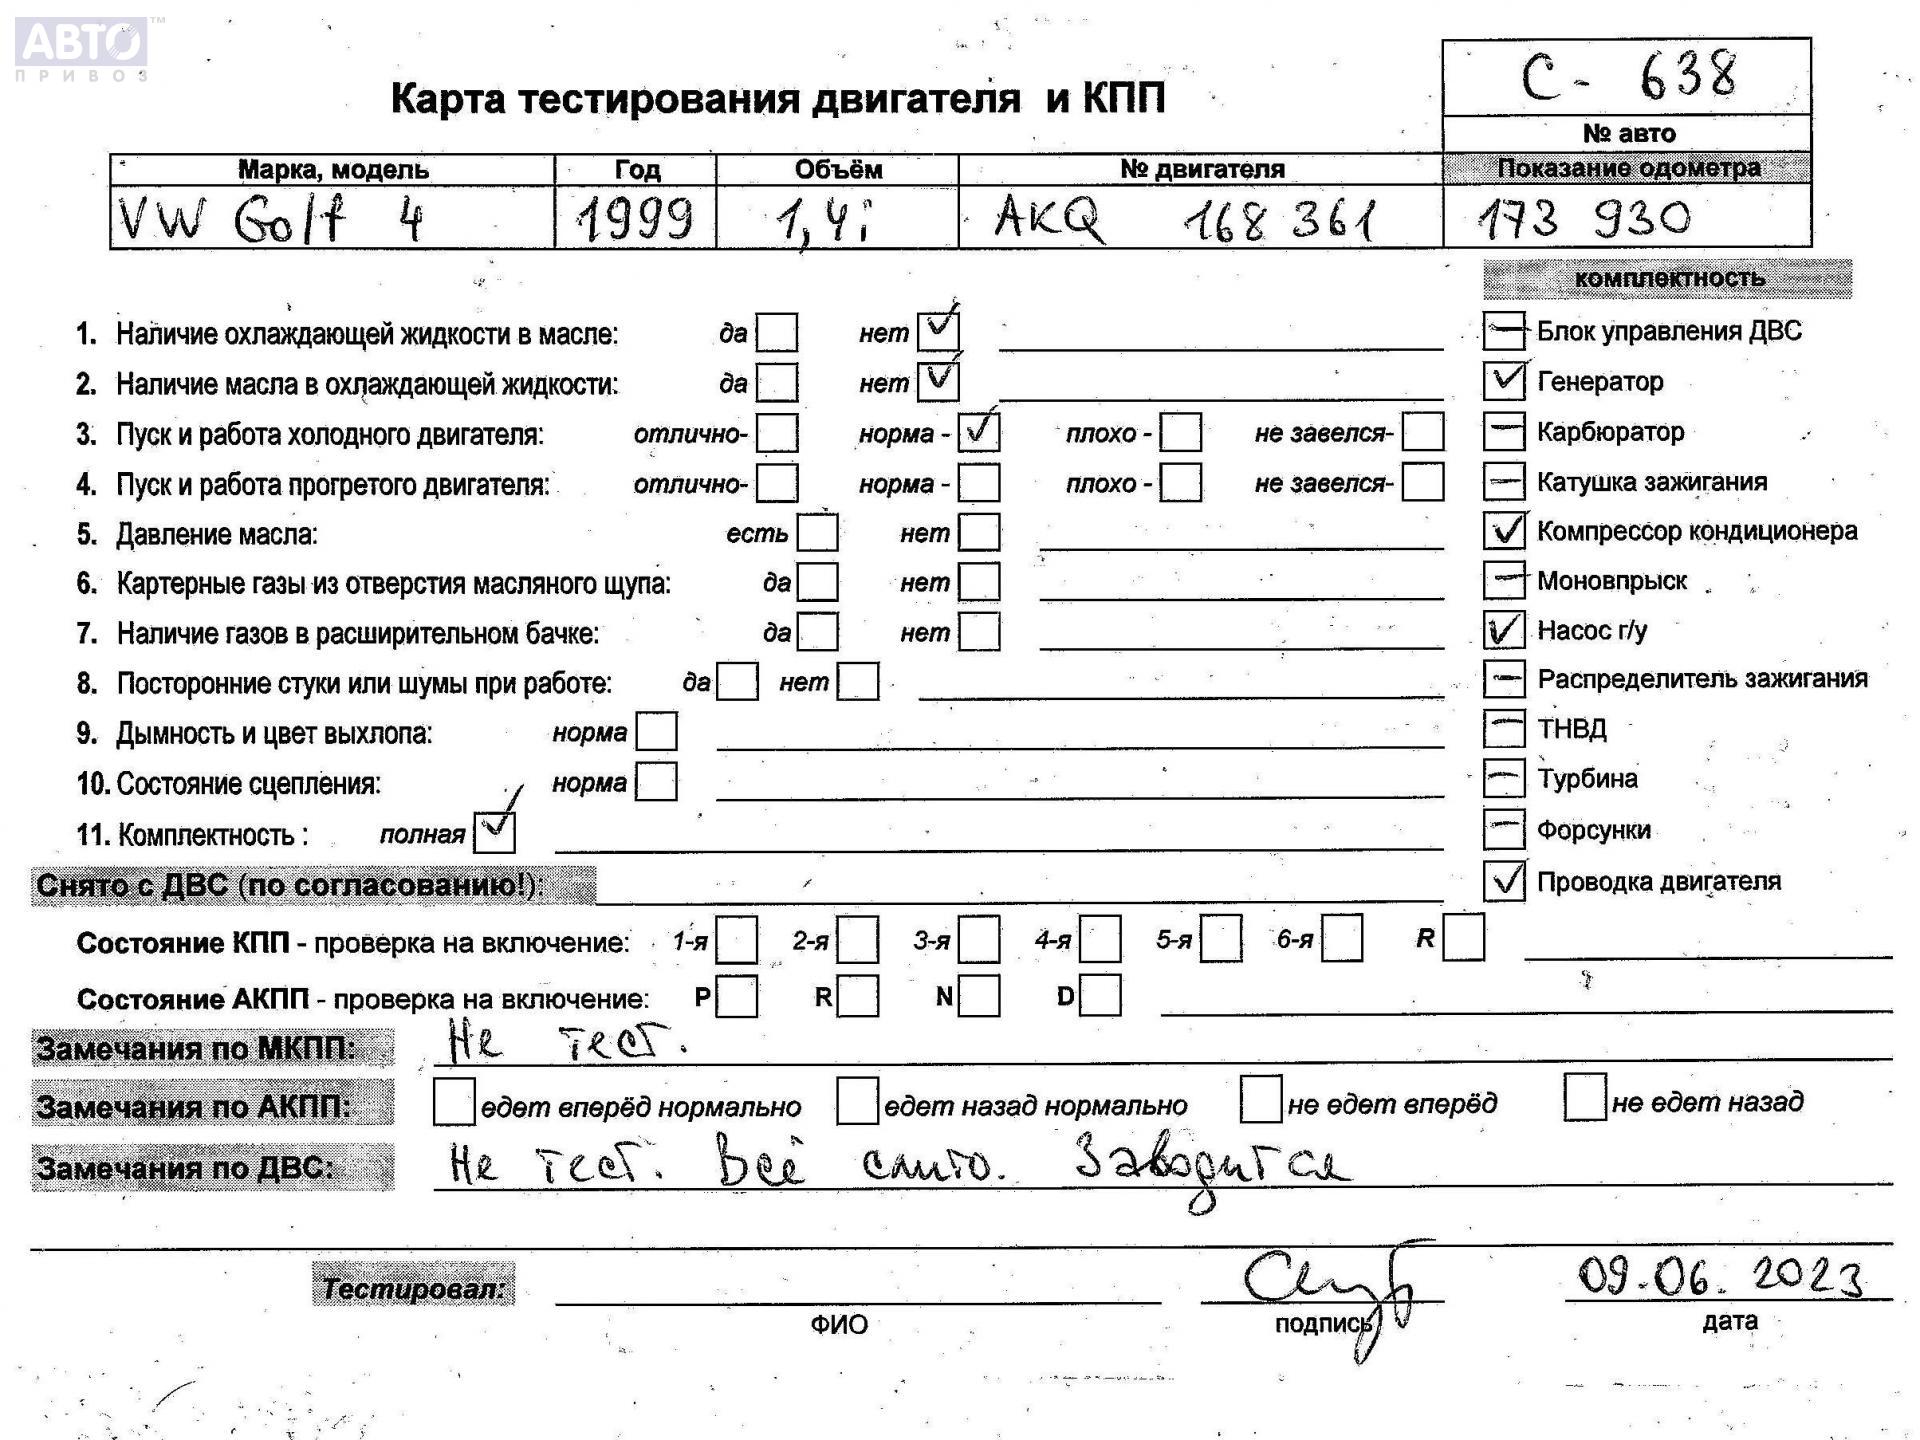 АВТО™
ПРИВОЗ
С - 638
Карта тестирования двигателя и КПП
№ авто
Марка, модель Год Объём № двигателя Показание одометра
VW Golf 4 1999 1,4i AKQ 168 361 173 930
комплектность
1. Наличие охлаждающей жидкости в масле: да нет ✓ Блок управления ДВС
2. Наличие масла в охлаждающей жидкости: да нет ✓ ✓ Генератор
3. Пуск и работа холодного двигателя: отлично- норма - ✓ плохо - не завелся- Карбюратор
4. Пуск и работа прогретого двигателя: отлично- норма - плохо - не завелся- Катушка зажигания
5. Давление масла: есть нет ✓ Компрессор кондиционера
6. Картерные газы из отверстия масляного щупа: да нет Моновпрыск
7. Наличие газов в расширительном бачке: да нет ✓ Насос г/у
8. Посторонние стуки или шумы при работе: да нет Распределитель зажигания
9. Дымность и цвет выхлопа: норма ТНВД
10. Состояние сцепления: норма Турбина
11. Комплектность : полная ✓ Форсунки
Снято с ДВС (по согласованию!): ✓ Проводка двигателя
Состояние КПП - проверка на включение: 1-я 2-я 3-я 4-я 5-я 6-я R
Состояние АКПП - проверка на включение: P R N D
Замечания по МКПП: Не тест.
Замечания по АКПП: едет вперёд нормально едет назад нормально не едет вперёд не едет назад
Замечания по ДВС: Не тест. Всё слито. Заводится
Тестировал: 09.06.2023
ФИО подпись дата